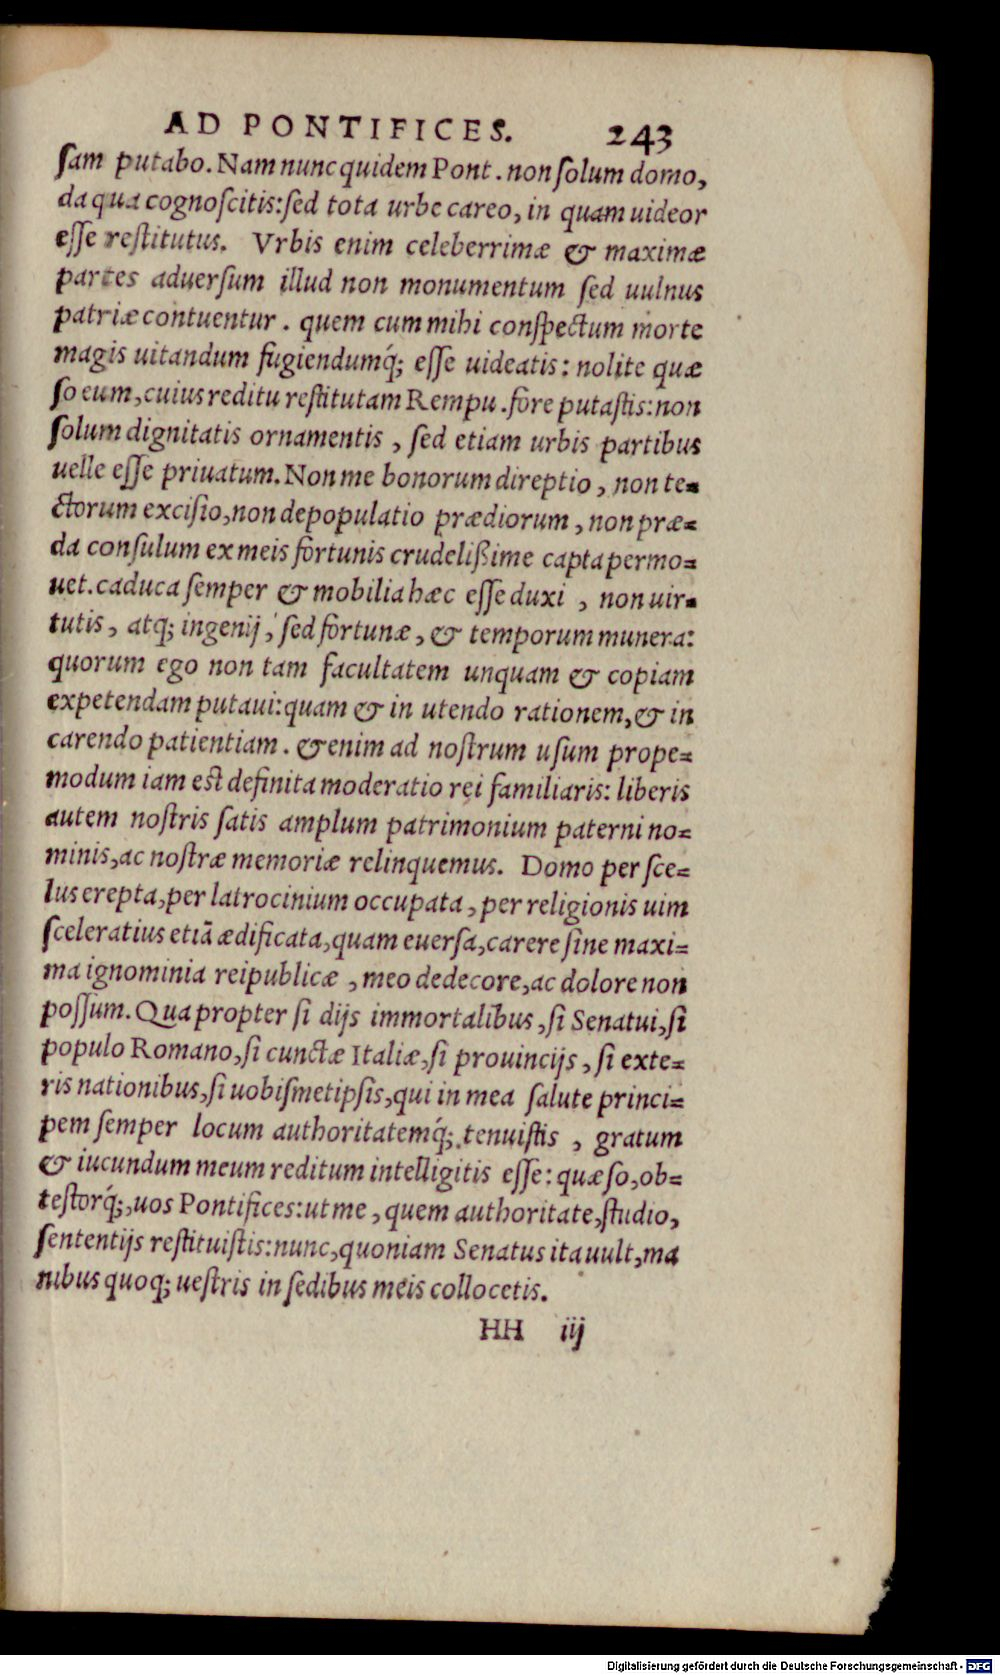 AD PONTIFICES. 243
ſam putabo. Nam nunc quidem Pont. non ſolum domo,
da qua cognoſcitis:ſed tota urbe careo, in quam uideor
eſſe reſtitutus. Vrbis enim celeberrimæ & maximæ
partes aduerſum illud non monumentum ſed uulnus
patriæ contuentur. quem cum mihi conſpectum morte
magis uitandum fugiendumq́; eſſe uideatis: nolite quæ
ſo eum, cuius reditu reſtitutam Rempu. fore putaſtis: non
ſolum dignitatis ornamentis, ſed etiam urbis partibus
uelle eſſe priuatum. Non me bonorum direptio, non te=
ctorum exciſio, non depopulatio prædiorum, non præ=
da conſulum ex meis fortunis crudelißime capta permo=
uet. caduca ſemper & mobilia hæc eſſe duxi, non uir=
tutis, atq; ingenij, ſed fortunæ, & temporum munera:
quorum ego non tam facultatem unquam & copiam
expetendam putaui: quam & in utendo rationem, & in
carendo patientiam. etenim ad noſtrum uſum prope=
modum iam est definita moderatio rei familiaris: liberis
autem noſtris ſatis amplum patrimonium paterni no=
minis, ac noſtræ memoriæ relinquemus. Domo per ſce=
lus erepta, per latrocinium occupata, per religionis uim
ſceleratius etiā ædificata, quam euerſa, carere ſine maxi=
ma ignominia reipublicæ, meo dedecore, ac dolore non
poſſum. Quapropter ſi dijs immortalibus, ſi Senatui, ſi
populo Romano, ſi cunctæ Italiæ, ſi prouincijs, ſi exte=
ris nationibus, ſi uobiſmetipſis, qui in mea ſalute princi=
pem ſemper locum authoritatemq́; tenuiſtis, gratum
& iucundum meum reditum intelligitis eſſe: quæſo, ob=
teſtorq́;, uos Pontifices: ut me, quem authoritate, ſtudio,
ſententijs reſtituiſtis: nunc, quoniam Senatus ita uult, ma
nibus quoq; ueſtris in ſedibus meis collocetis.
HH iij
Digitalisierung gefördert durch die Deutsche Forschungsgemeinschaft - DFG